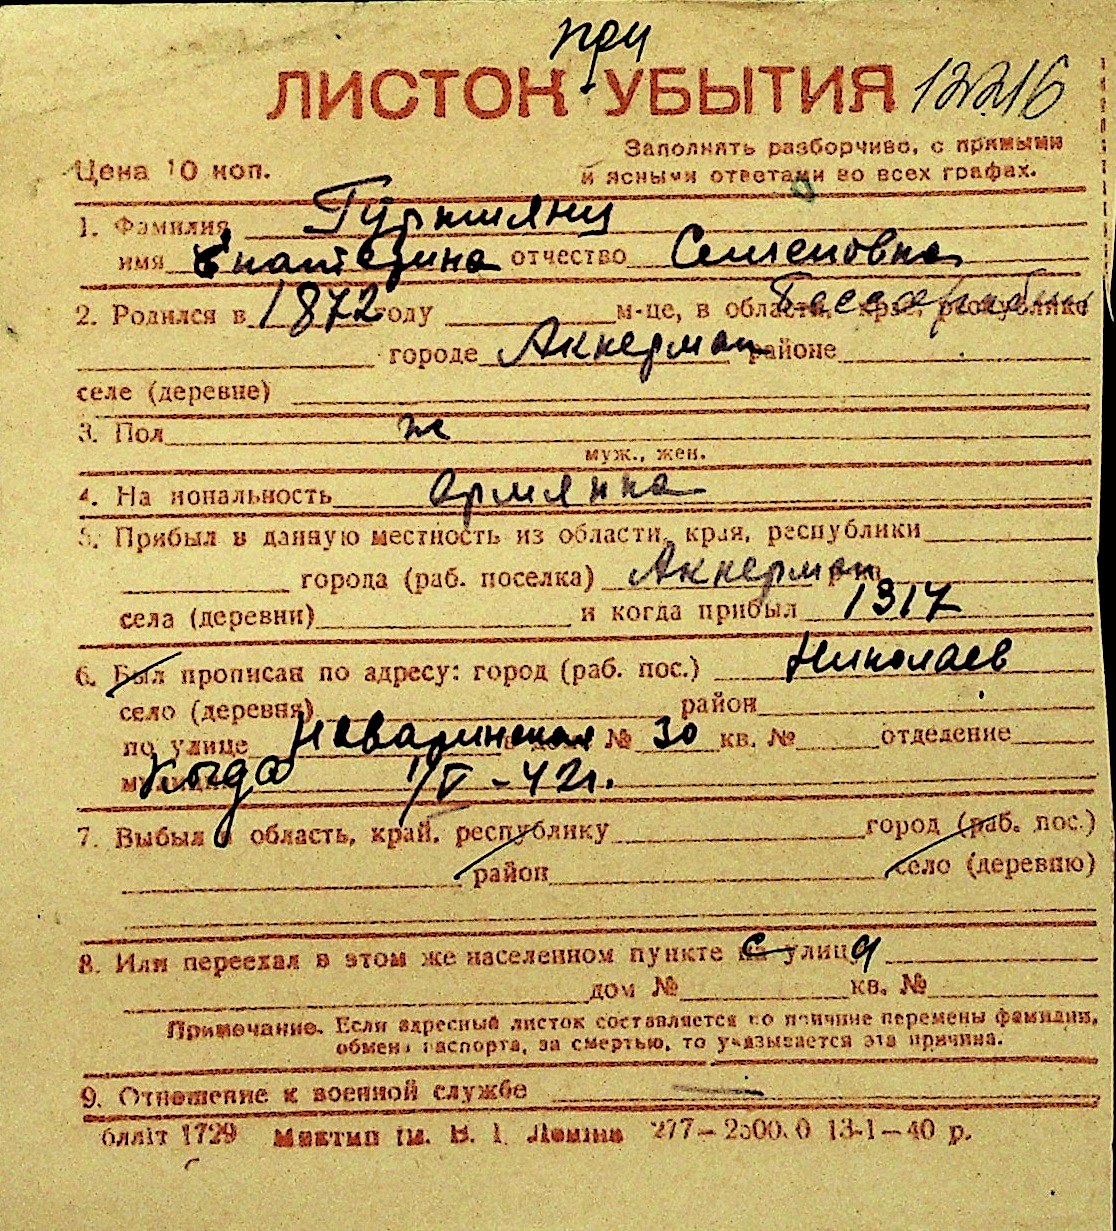 при
ЛИСТОК УБЫТИЯ 12216
Заполнять разборчиво, с прямыми
Цена 10 коп. и ясными ответами во всех графах.
1. Фамилия
имя Екатерина отчество Семеновна
2. Родился в 1872 году м-це, в области, крае, республике
городе Аккерман районе
селе (деревне)
3. Пол ж
муж., жен.
4. Национальность армянка
5. Прибыл в данную местность из области, края, республики
города (раб. поселка) Аккерман
села (деревни) и когда прибыл 1917
6. Был прописан по адресу: город (раб. пос.) Николаев
село (деревня) район
по улице Наваринская № 30 кв. № отделение
Когда 1/V-42г.
7. Выбыл в область, край, республику город (раб. пос.)
район село (деревню)
8. Или переехал в этом же населенном пункте с улица
дом № кв. №
Примечание. Если адресный листок составляется по причине перемены фамилии,
обмена паспорта, за смертью, то указывается эта причина.
9. Отношение к военной службе —
бліт 1729 277— 13-1—40 р.